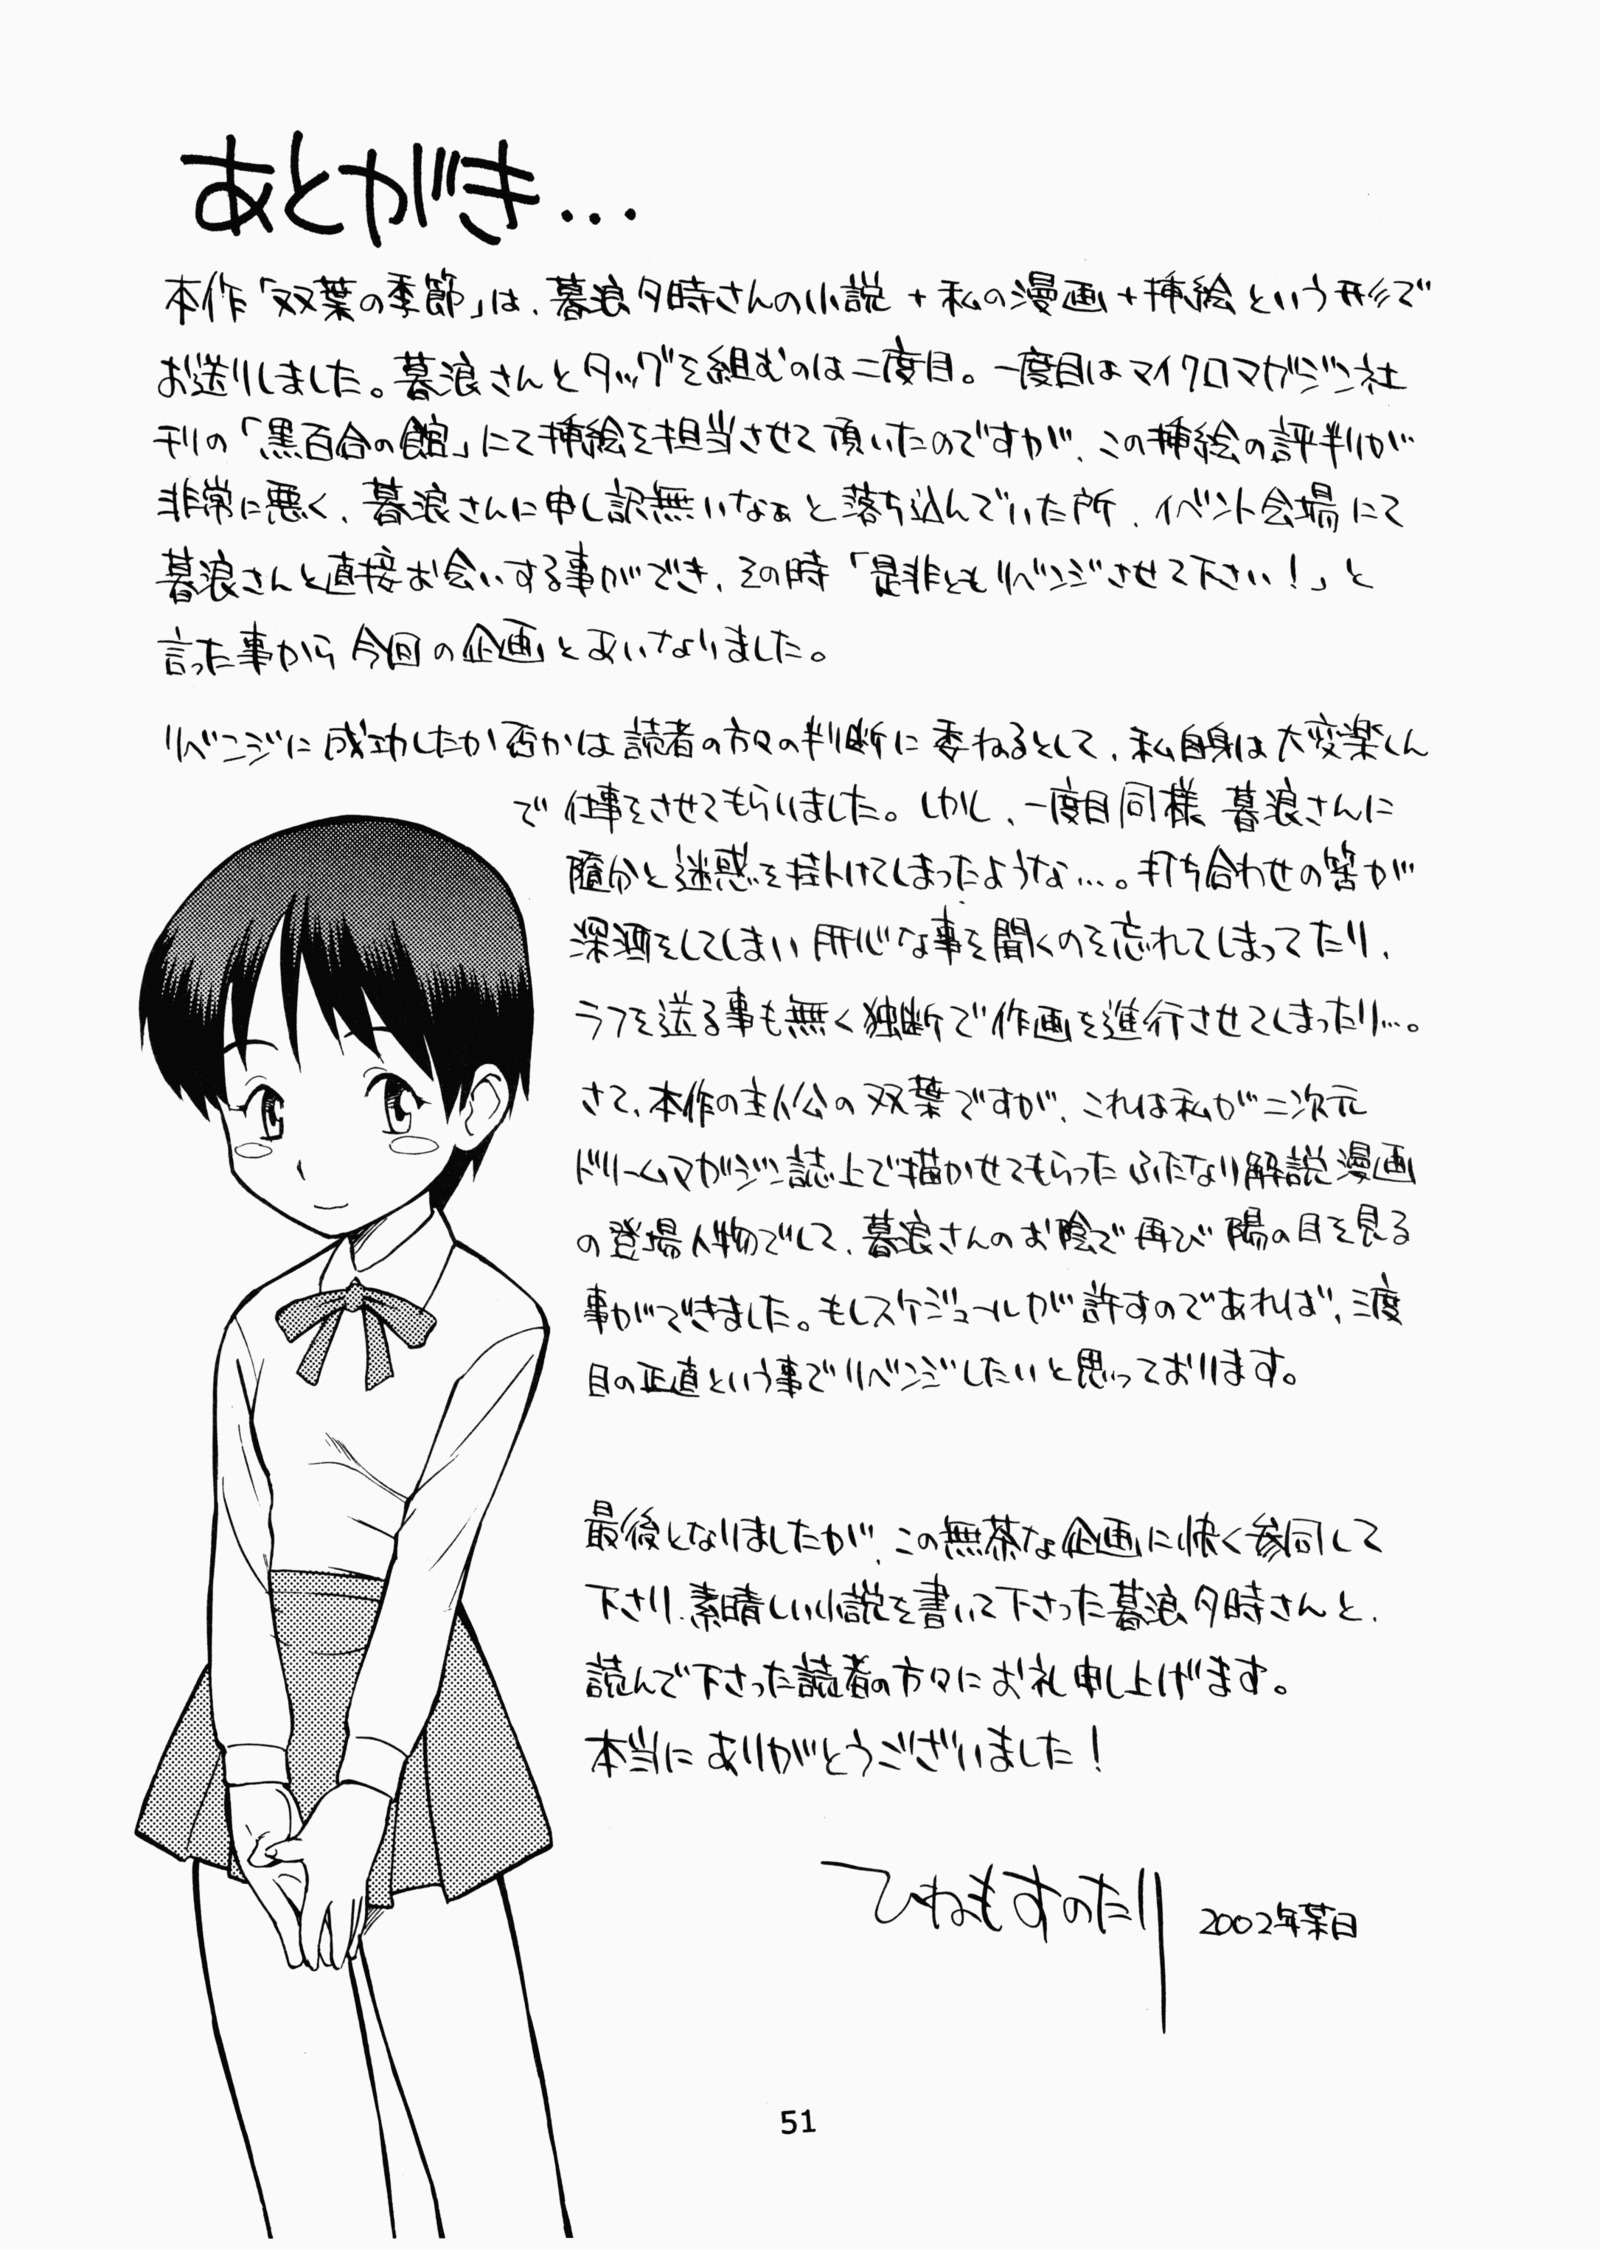 あとがき…
本作「双葉の季節」は、暮浪夕時さんの小説+私の漫画+挿絵という形で
お送りしました。暮浪さんとタッグを組むのは二度目。一度目はマイクロマガジン社
刊の「黒百合の館」にて挿絵を担当させて頂いたのですが、この挿絵の評判が
非常に悪く、暮浪さんに申し訳無いなぁと落ち込んでいた所、イベント会場にて
暮浪さんと直接お会いする事ができ、その時「是非ともリベンジさせて下さい!」と
言った事から今回の企画とあいなりました。
リベンジに成功したか否かは読者の方々の判断に委ねるとして、私自身は大変楽しん
で仕事をさせてもらいました。しかし、一度目同様暮浪さんに
随分と迷惑を掛けてしまったような…。打ち合わせの筈が
深酒をしてしまい肝心な事を聞くのを忘れてしまってたり、
ラフを送る事も無く独断で作画を進行させてしまったり…。
さて、本作の主人公の双葉ですが、これは私が二次元
ドリームマガジン誌上で描かせてもらったふたなり解説漫画
の登場人物でして、暮浪さんのお陰で再び陽の目を見る
事ができました。もしスケジュールが許すのであれば、三度
目の正直という事でリベンジしたいと思っております。
最後となりましたが、この無茶な企画に快く参同して
下さり、素晴しい小説を書いて下さった暮浪夕時さんと、
読んで下さった読者の方々にお礼申し上げます。
本当にありがとうございました!
ひねもすのたり 2002年某日
51